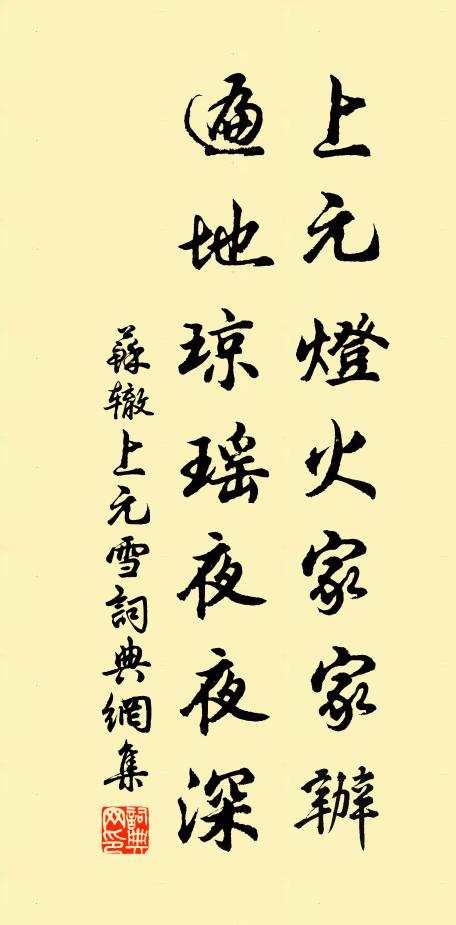 上元燈火家家辦
遍地琼瑶夜夜深
蘇辙上元雪詞典網集
詞典网印